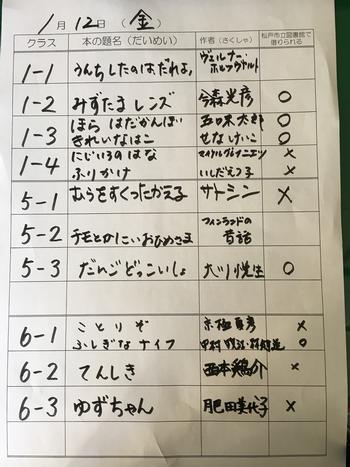 1月12日(金)
クラス 本の題名(だいめい) 作者(さくしゃ) 松戸市立図書館で借りられる
1-1 うんちしたのはだれよ! ヴェルナー・ホルツヴァルト
1-2 みずたまレンズ 今森光彦 ○
1-3 ほら はだかんぼ 五味太郎 ○
きれいなはこ せなけいこ
1-4 にじいろのはな マイケル・グレイニエツ ×
ふりかけ ×
5-1 むらをすくったかえる サトシン ×
5-2 チモとかしこいおひめさま フィンランドの昔話
5-3 だんごどっこいしょ 大川悦生 ○
6-1 ことりぞ 京極夏彦 ×
ふしぎなナイフ 中村牧江・林健造 ○
6-2 てんしき 西本鶏介 ×
6-3 ゆずちゃん 肥田美代子 ×